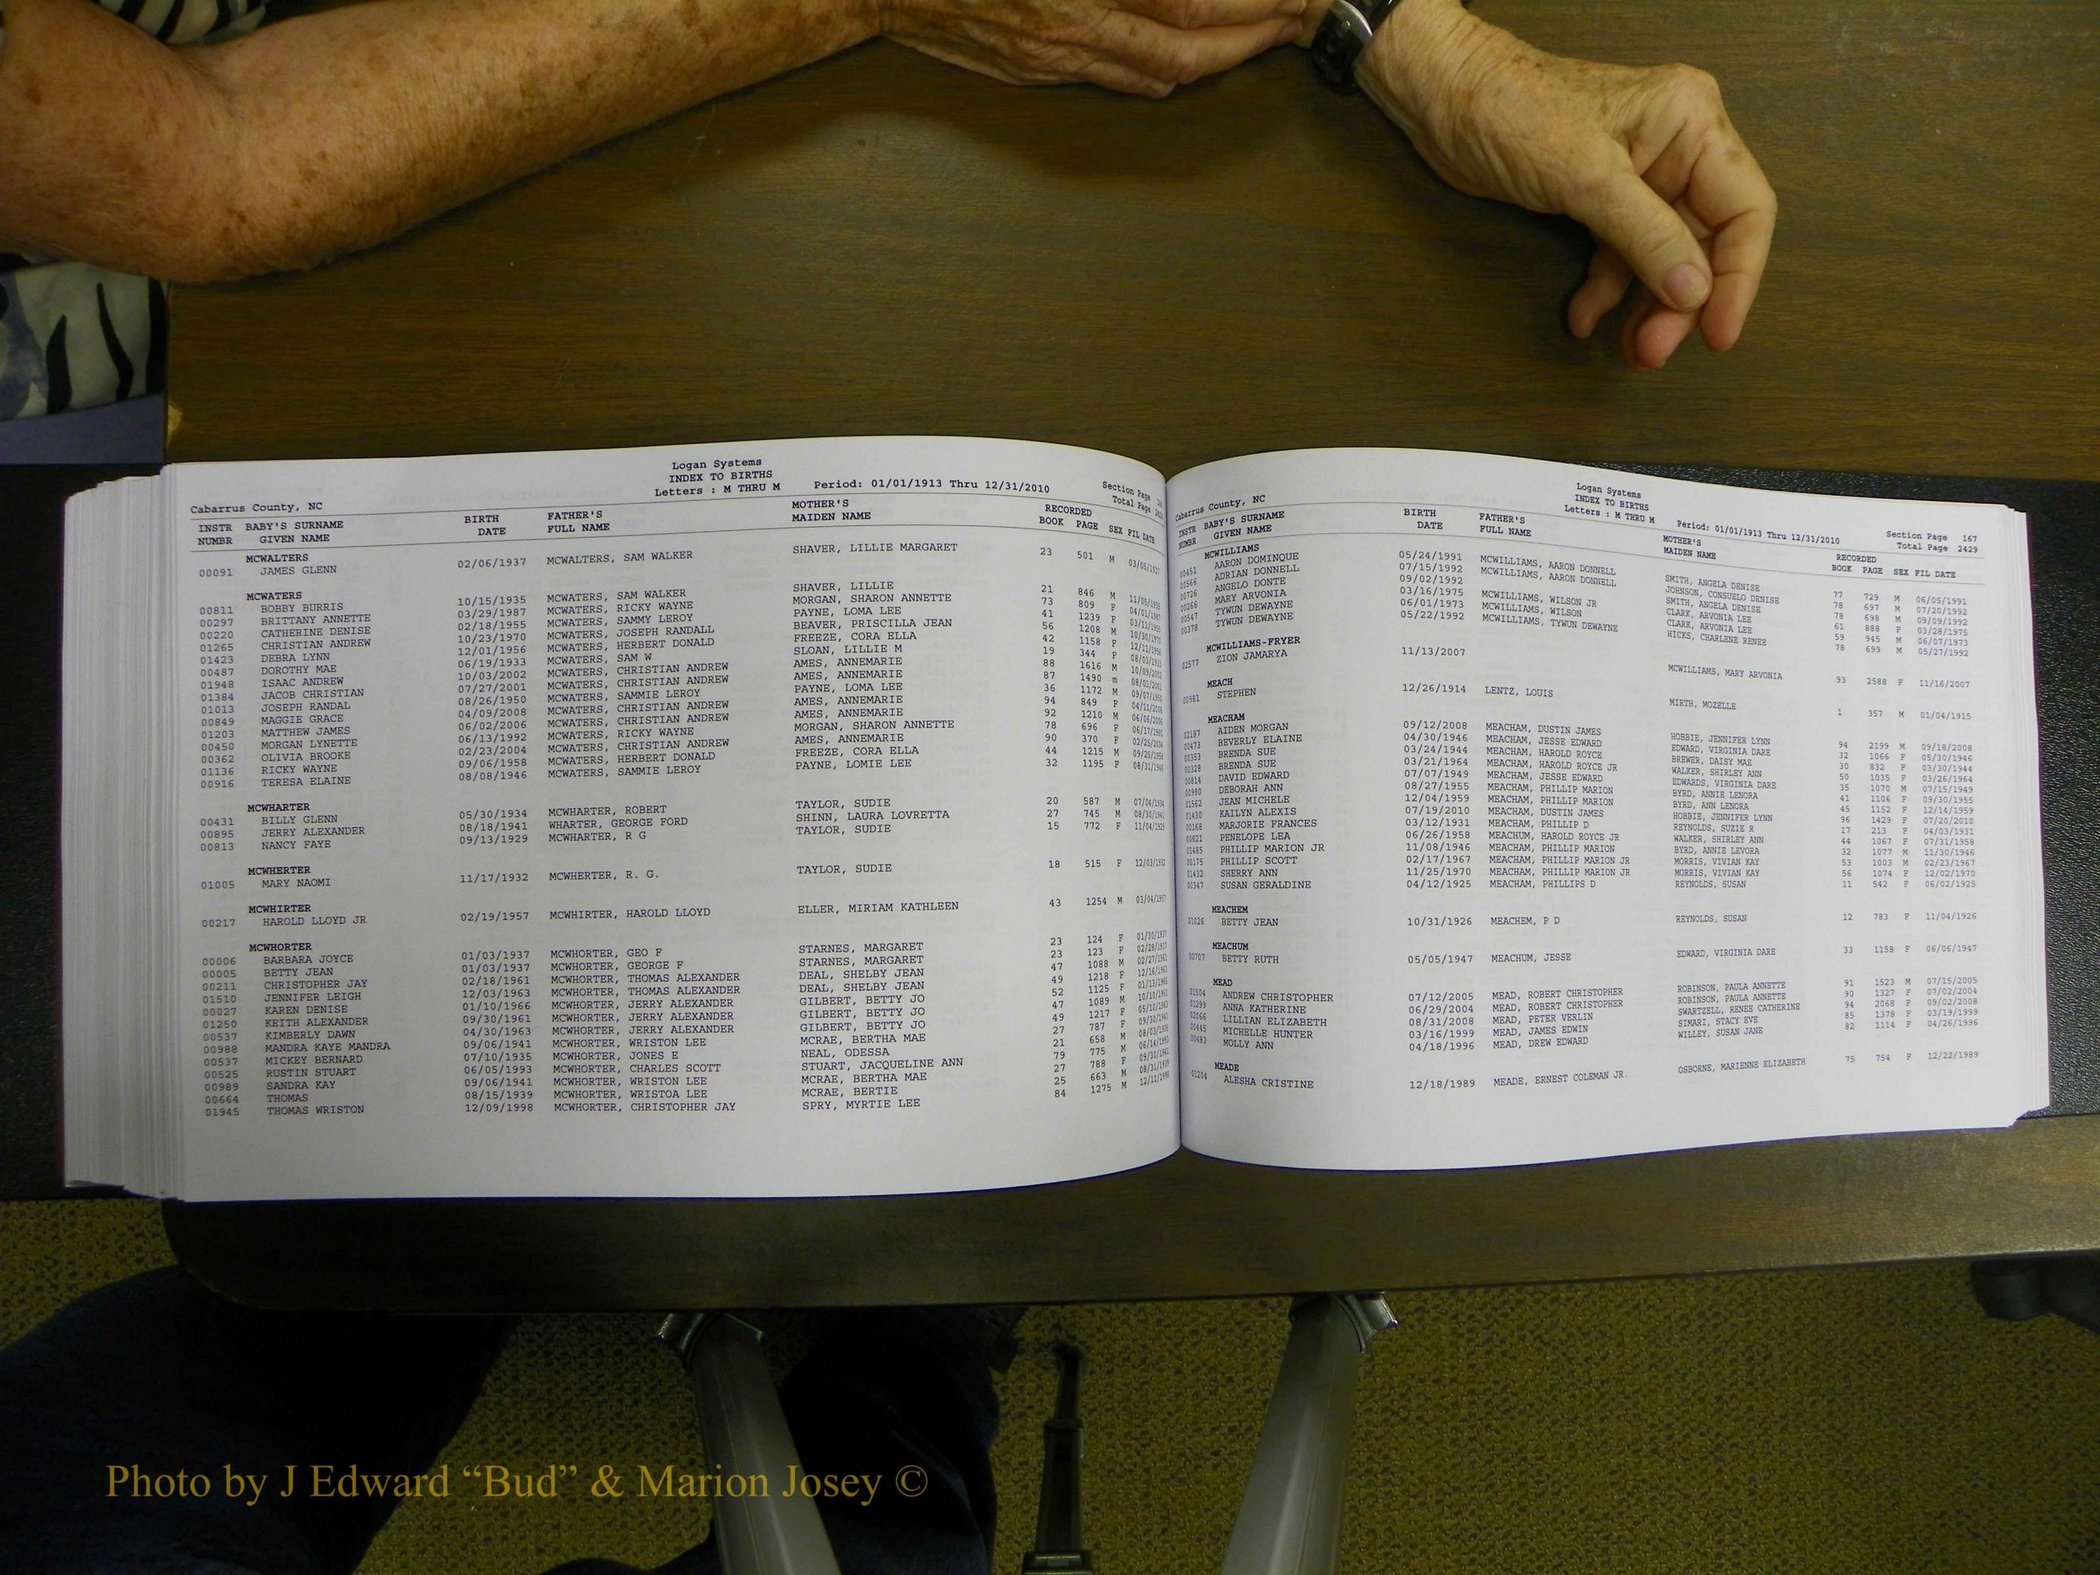 Logan Systems
INDEX TO BIRTHS
Cabarrus County, NC Letters : M THRU M Period: 01/01/1913 Thru 12/31/2010 Section Page
Total Page
INSTR BABY'S SURNAME BIRTH FATHER'S MOTHER'S RECORDED
NUMBR GIVEN NAME DATE FULL NAME MAIDEN NAME BOOK PAGE SEX FIL DATE
MCWALTERS
00091 JAMES GLENN 02/06/1937 MCWALTERS, SAM WALKER SHAVER, LILLIE MARGARET 23 501 M 03/05/1937
MCWATERS
00811 BOBBY BURRIS 10/15/1935 MCWATERS, SAM WALKER SHAVER, LILLIE 21 846 M 11/05/1935
00297 BRITTANY ANNETTE 03/29/1987 MCWATERS, RICKY WAYNE MORGAN, SHARON ANNETTE 73 809 F 04/01/1987
00220 CATHERINE DENISE 02/18/1955 MCWATERS, SAMMY LEROY PAYNE, LOMA LEE 41 1239 F 03/11/1955
01265 CHRISTIAN ANDREW 10/23/1970 MCWATERS, JOSEPH RANDALL BEAVER, PRISCILLA JEAN 56 1208 M 10/30/1970
01423 DEBRA LYNN 12/01/1956 MCWATERS, HERBERT DONALD FREEZE, CORA ELLA 42 1158 F 12/11/1956
00487 DOROTHY MAE 06/19/1933 MCWATERS, SAM W SLOAN, LILLIE M 19 344 F 08/03/1933
01948 ISAAC ANDREW 10/03/2002 MCWATERS, CHRISTIAN ANDREW AMES, ANNEMARIE 88 1616 M 10/09/2002
01384 JACOB CHRISTIAN 07/27/2001 MCWATERS, CHRISTIAN ANDREW AMES, ANNEMARIE 87 1490 m 08/01/2001
01013 JOSEPH RANDAL 08/26/1950 MCWATERS, SAMMIE LEROY PAYNE, LOMA LEE 36 1172 M 09/07/1950
00849 MAGGIE GRACE 04/09/2008 MCWATERS, CHRISTIAN ANDREW AMES, ANNEMARIE 94 849 F 04/11/2008
01203 MATTHEW JAMES 06/02/2006 MCWATERS, CHRISTIAN ANDREW AMES, ANNEMARIE 92 1210 M 06/06/2006
00450 MORGAN LYNETTE 06/13/1992 MCWATERS, RICKY WAYNE MORGAN, SHARON ANNETTE 78 696 F 06/17/1992
00362 OLIVIA BROOKE 02/23/2004 MCWATERS, CHRISTIAN ANDREW AMES, ANNEMARIE 90 370 F 02/25/2004
01136 RICKY WAYNE 09/06/1958 MCWATERS, HERBERT DONALD FREEZE, CORA ELLA 44 1215 M 09/25/1958
00916 TERESA ELAINE 08/08/1946 MCWATERS, SAMMIE LEROY PAYNE, LOMIE LEE 32 1195 F 08/31/1946
MCWHARTER
00431 BILLY GLENN 05/30/1934 MCWHARTER, ROBERT TAYLOR, SUDIE 20 587 M 07/04/1934
00895 JERRY ALEXANDER 08/18/1941 WHARTER, GEORGE FORD SHINN, LAURA LOVRETTA 27 745 M 08/30/1941
00813 NANCY FAYE 09/13/1929 MCWHARTER, R G TAYLOR, SUDIE 15 772 F 11/04/1929
MCWHERTER
01005 MARY NAOMI 11/17/1932 MCWHERTER, R. G. TAYLOR, SUDIE 18 515 F 12/03/1932
MCWHIRTER
00217 HAROLD LLOYD JR 02/19/1957 MCWHIRTER, HAROLD LLOYD ELLER, MIRIAM KATHLEEN 43 1254 M 03/04/1957
MCWHORTER
00006 BARBARA JOYCE 01/03/1937 MCWHORTER, GEO F STARNES, MARGARET 23 124 F 01/30/1937
00005 BETTY JEAN 01/03/1937 MCWHORTER, GEORGE F STARNES, MARGARET 23 123 F 02/28/1937
00211 CHRISTOPHER JAY 02/18/1961 MCWHORTER, THOMAS ALEXANDER DEAL, SHELBY JEAN 47 1088 M 02/27/1961
01510 JENNIFER LEIGH 12/03/1963 MCWHORTER, THOMAS ALEXANDER DEAL, SHELBY JEAN 49 1218 F 12/16/1963
00027 KAREN DENISE 01/10/1966 MCWHORTER, JERRY ALEXANDER GILBERT, BETTY JO 52 1125 F 01/13/1966
01250 KEITH ALEXANDER 09/30/1961 MCWHORTER, JERRY ALEXANDER GILBERT, BETTY JO 47 1089 M 10/10/1961
00537 KIMBERLY DAWN 04/30/1963 MCWHORTER, JERRY ALEXANDER GILBERT, BETTY JO 49 1217 F 05/10/1963
00988 MANDRA KAYE MANDRA 09/06/1941 MCWHORTER, WRISTON LEE MCRAE, BERTHA MAE 27 787 F 09/30/1941
00537 MICKEY BERNARD 07/10/1935 MCWHORTER, JONES E NEAL, ODESSA 21 658 M 08/03/1935
00525 RUSTIN STUART 06/05/1993 MCWHORTER, CHARLES SCOTT STUART, JACQUELINE ANN 79 775 M 06/14/1993
00989 SANDRA KAY 09/06/1941 MCWHORTER, WRISTON LEE MCRAE, BERTHA MAE 27 788 F 09/30/1941
00664 THOMAS 08/15/1939 MCWHORTER, WRISTOA LEE MCRAE, BERTIE 25 663 M 08/31/1939
01945 THOMAS WRISTON 12/09/1998 MCWHORTER, CHRISTOPHER JAY SPRY, MYRTIE LEE 84 1275 M 12/11/1998
Logan Systems
INDEX TO BIRTHS
Cabarrus County, NC Letters : M THRU M Period: 01/01/1913 Thru 12/31/2010 Section Page 167
Total Page 2429
INSTR BABY'S SURNAME BIRTH FATHER'S MOTHER'S RECORDED
NUMBR GIVEN NAME DATE FULL NAME MAIDEN NAME BOOK PAGE SEX FIL DATE
MCWILLIAMS
00451 AARON DOMINQUE 05/24/1991 MCWILLIAMS, AARON DONNELL SMITH, ANGELA DENISE 77 729 M 06/05/1991
00566 ADRIAN DONNELL 07/15/1992 MCWILLIAMS, AARON DONNELL JOHNSON, CONSUELO DENISE 78 697 M 07/20/1992
00726 ANGELO DONTE 09/02/1992 SMITH, ANGELA DENISE 78 698 M 09/09/1992
00266 MARY ARVONIA 03/16/1975 MCWILLIAMS, WILSON JR CLARK, ARVONIA LEE 61 888 F 03/28/1975
00547 TYWUN DEWAYNE 06/01/1973 MCWILLIAMS, WILSON CLARK, ARVONIA LEE 59 945 M 06/07/1973
00378 TYWUN DEWAYNE 05/22/1992 MCWILLIAMS, TYWUN DEWAYNE HICKS, CHARLENE RENEE 78 699 M 05/27/1992
MCWILLIAMS-FRYER
02577 ZION JAMARYA 11/13/2007 MCWILLIAMS, MARY ARVONIA 93 2588 F 11/16/2007
MEACH
00981 STEPHEN 12/26/1914 LENTZ, LOUIS MIRTH, MOZELLE 1 357 M 01/04/1915
MEACHAM
02187 AIDEN MORGAN 09/12/2008 MEACHAM, DUSTIN JAMES HOBBIE, JENNIFER LYNN 94 2199 M 09/18/2008
00473 BEVERLY ELAINE 04/30/1946 MEACHAM, JESSE EDWARD EDWARD, VIRGINIA DARE 32 1066 F 05/30/1946
00353 BRENDA SUE 03/24/1944 MEACHAM, HAROLD ROYCE BREWER, DAISY MAE 30 832 F 03/30/1944
00328 BRENDA SUE 03/21/1964 MEACHAM, HAROLD ROYCE JR WALKER, SHIRLEY ANN 50 1035 F 03/26/1964
00814 DAVID EDWARD 07/07/1949 MEACHAM, JESSE EDWARD EDWARDS, VIRGINIA DARE 35 1070 M 07/15/1949
00980 DEBORAH ANN 08/27/1955 MEACHAM, PHILLIP MARION BYRD, ANNIE LENORA 41 1106 F 09/30/1955
01562 JEAN MICHELE 12/04/1959 MEACHAM, PHILLIP MARION BYRD, ANN LENORA 45 1152 F 12/14/1959
01430 KAILYN ALEXIS 07/19/2010 MEACHAM, DUSTIN JAMES HOBBIE, JENNIFER LYNN 96 1429 F 07/20/2010
00168 MARJORIE FRANCES 03/12/1931 MEACHAM, PHILLIP D REYNOLDS, SUZIE R 17 213 F 04/03/1931
00821 PENELOPE LEA 06/26/1958 MEACHUM, HAROLD ROYCE JR WALKER, SHIRLEY ANN 44 1067 F 07/31/1958
01485 PHILLIP MARION JR 11/08/1946 MEACHAM, PHILLIP MARION BYRD, ANNIE LEVORA 32 1077 M 11/30/1946
00175 PHILLIP SCOTT 02/17/1967 MEACHAM, PHILLIP MARION JR MORRIS, VIVIAN KAY 53 1003 M 02/23/1967
01432 SHERRY ANN 11/25/1970 MEACHAM, PHILLIP MARION JR MORRIS, VIVIAN KAY 56 1074 F 12/02/1970
00347 SUSAN GERALDINE 04/12/1925 MEACHAM, PHILLIPS D REYNOLDS, SUSAN 11 542 F 06/02/1925
MEACHEM
01026 BETTY JEAN 10/31/1926 MEACHEM, P D REYNOLDS, SUSAN 12 783 F 11/04/1926
MEACHUM
00707 BETTY RUTH 05/05/1947 MEACHUM, JESSE EDWARD, VIRGINIA DARE 33 1158 F 06/06/1947
MEAD
01504 ANDREW CHRISTOPHER 07/12/2005 MEAD, ROBERT CHRISTOPHER ROBINSON, PAULA ANNETTE 91 1523 M 07/15/2005
01299 ANNA KATHERINE 06/29/2004 MEAD, ROBERT CHRISTOPHER ROBINSON, PAULA ANNETTE 90 1327 F 07/02/2004
02066 LILLIAN ELIZABETH 08/31/2008 MEAD, PETER VERLIN SWARTZELL, RENEE CATHERINE 94 2068 F 09/02/2008
00445 MICHELLE HUNTER 03/16/1999 MEAD, JAMES EDWIN SIMARI, STACY EVE 85 1378 F 03/19/1999
00483 MOLLY ANN 04/18/1996 MEAD, DREW EDWARD WILLEY, SUSAN JANE 82 1114 F 04/26/1996
MEADE
01204 ALESHA CRISTINE 12/18/1989 MEADE, ERNEST COLEMAN JR. OSBORNE, MARIENNE ELIZABETH 75 754 F 12/22/1989
Photo by J Edward “Bud” & Marion Josey ©